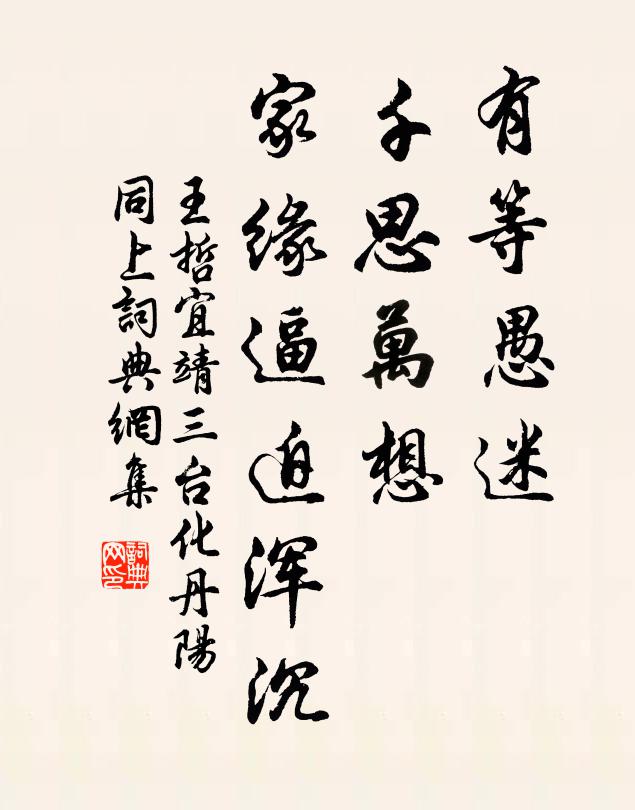 有等愚迷
千思萬想
家缘逼迫浑沉
王哲宜靖三台化丹陽
同上詞典網集
詞典网印